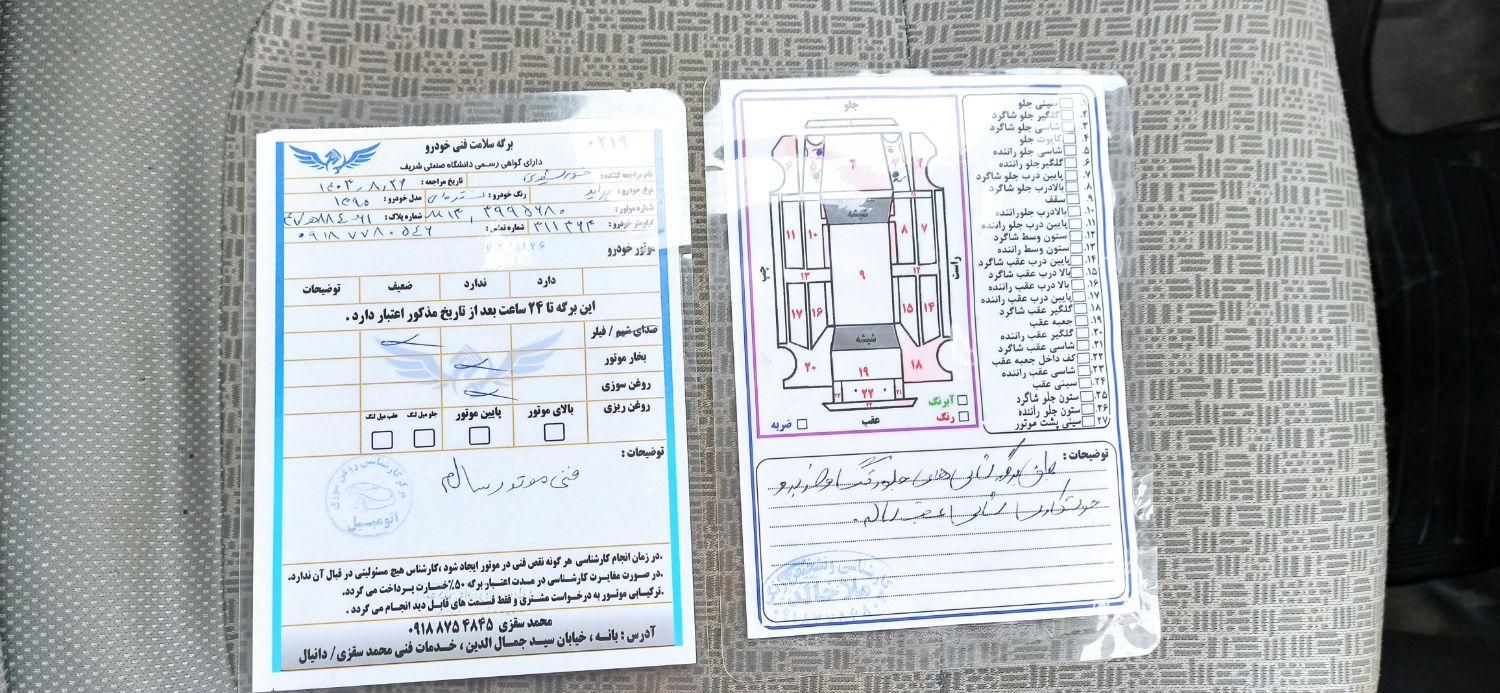 برگه سلامت فنی خودرو
۰۲۱۹
دارای گواهی رسمی دانشگاه صنعتی شریف
نام مراجعه کننده : تاریخ مراجعه : ۱۴۰۳،۸،۲۶
نوع خودرو : پراید رنگ خودرو : نقره‌ای مدل خودرو : ۱۳۹۵
شماره موتور : شماره پلاک :
کیلومتر خودرو : ۳۱۱۳۶۴ شماره تماس : ۰۹۱۸۷۷۸۰۵۴۶
موتور خودرو
دارد ندارد ضعیف توضیحات
این برگه تا ۲۴ ساعت بعد از تاریخ مذکور اعتبار دارد .
صدای شیم / فیلر
بخار موتور
روغن سوزی
روغن ریزی بالای موتور پایین موتور جلو میل لنگ عقب میل لنگ
توضیحات :
فنی موتور سالم
کارشناسی
اتومبیل
.در زمان انجام کارشناسی هرگونه نقص فنی در موتور ایجاد شود ،کارشناس هیچ مسئولیتی در قبال آن ندارد.
.در صورت مغایرت کارشناسی در مدت اعتبار برگه ۵۰٪خسارت پرداخت می گردد.
.ترکیبابی موتور به درخواست مشتری و فقط قسمت های قابل دید انجام می گردد .
محمد سقزی ۴۸۴۵ ۸۷۵ ۰۹۱۸
آدرس : بانه ، خیابان سید جمال الدین ، خدمات فنی محمد سقزی/ دانیال
جلو
۶ ۵ ۴ ۳ ۲
شیشه
۱۱ ۱۰ ۸ ۷
چپ ۹ راست
۱۳ ۱۲
۱۷ ۱۶ ۱۵ ۱۴
شیشه
۲۰ ۱۹ ۱۸
۲۲
عقب
آبرنگ
رنگ
ضربه
۱. سینی جلو
۲. گلگیر جلو شاگرد
۳. شاسی جلو شاگرد
۴. کاپوت جلو
۵. شاسی جلو راننده
۶. گلگیر جلو راننده
۷. پایین درب جلو شاگرد
۸. بالادرب جلو شاگرد
۹. سقف
۱۰. بالادرب جلوراننده
۱۱. پایین درب جلو راننده
۱۲. ستون وسط شاگرد
۱۳. ستون وسط راننده
۱۴. پایین درب عقب شاگرد
۱۵. بالا درب عقب شاگرد
۱۶. بالا درب عقب راننده
۱۷. پایین درب عقب راننده
۱۸. گلگیر عقب شاگرد
۱۹. جعبه عقب
۲۰. گلگیر عقب راننده
۲۱. شاسی عقب شاگرد
۲۲. کف داخل جعبه عقب
۲۳. شاسی عقب راننده
۲۴. سینی عقب
۲۵. ستون جلو شاگرد
۲۶. ستون جلو راننده
۲۷. سینی پشت موتور
توضیحات :
عقب سالم.